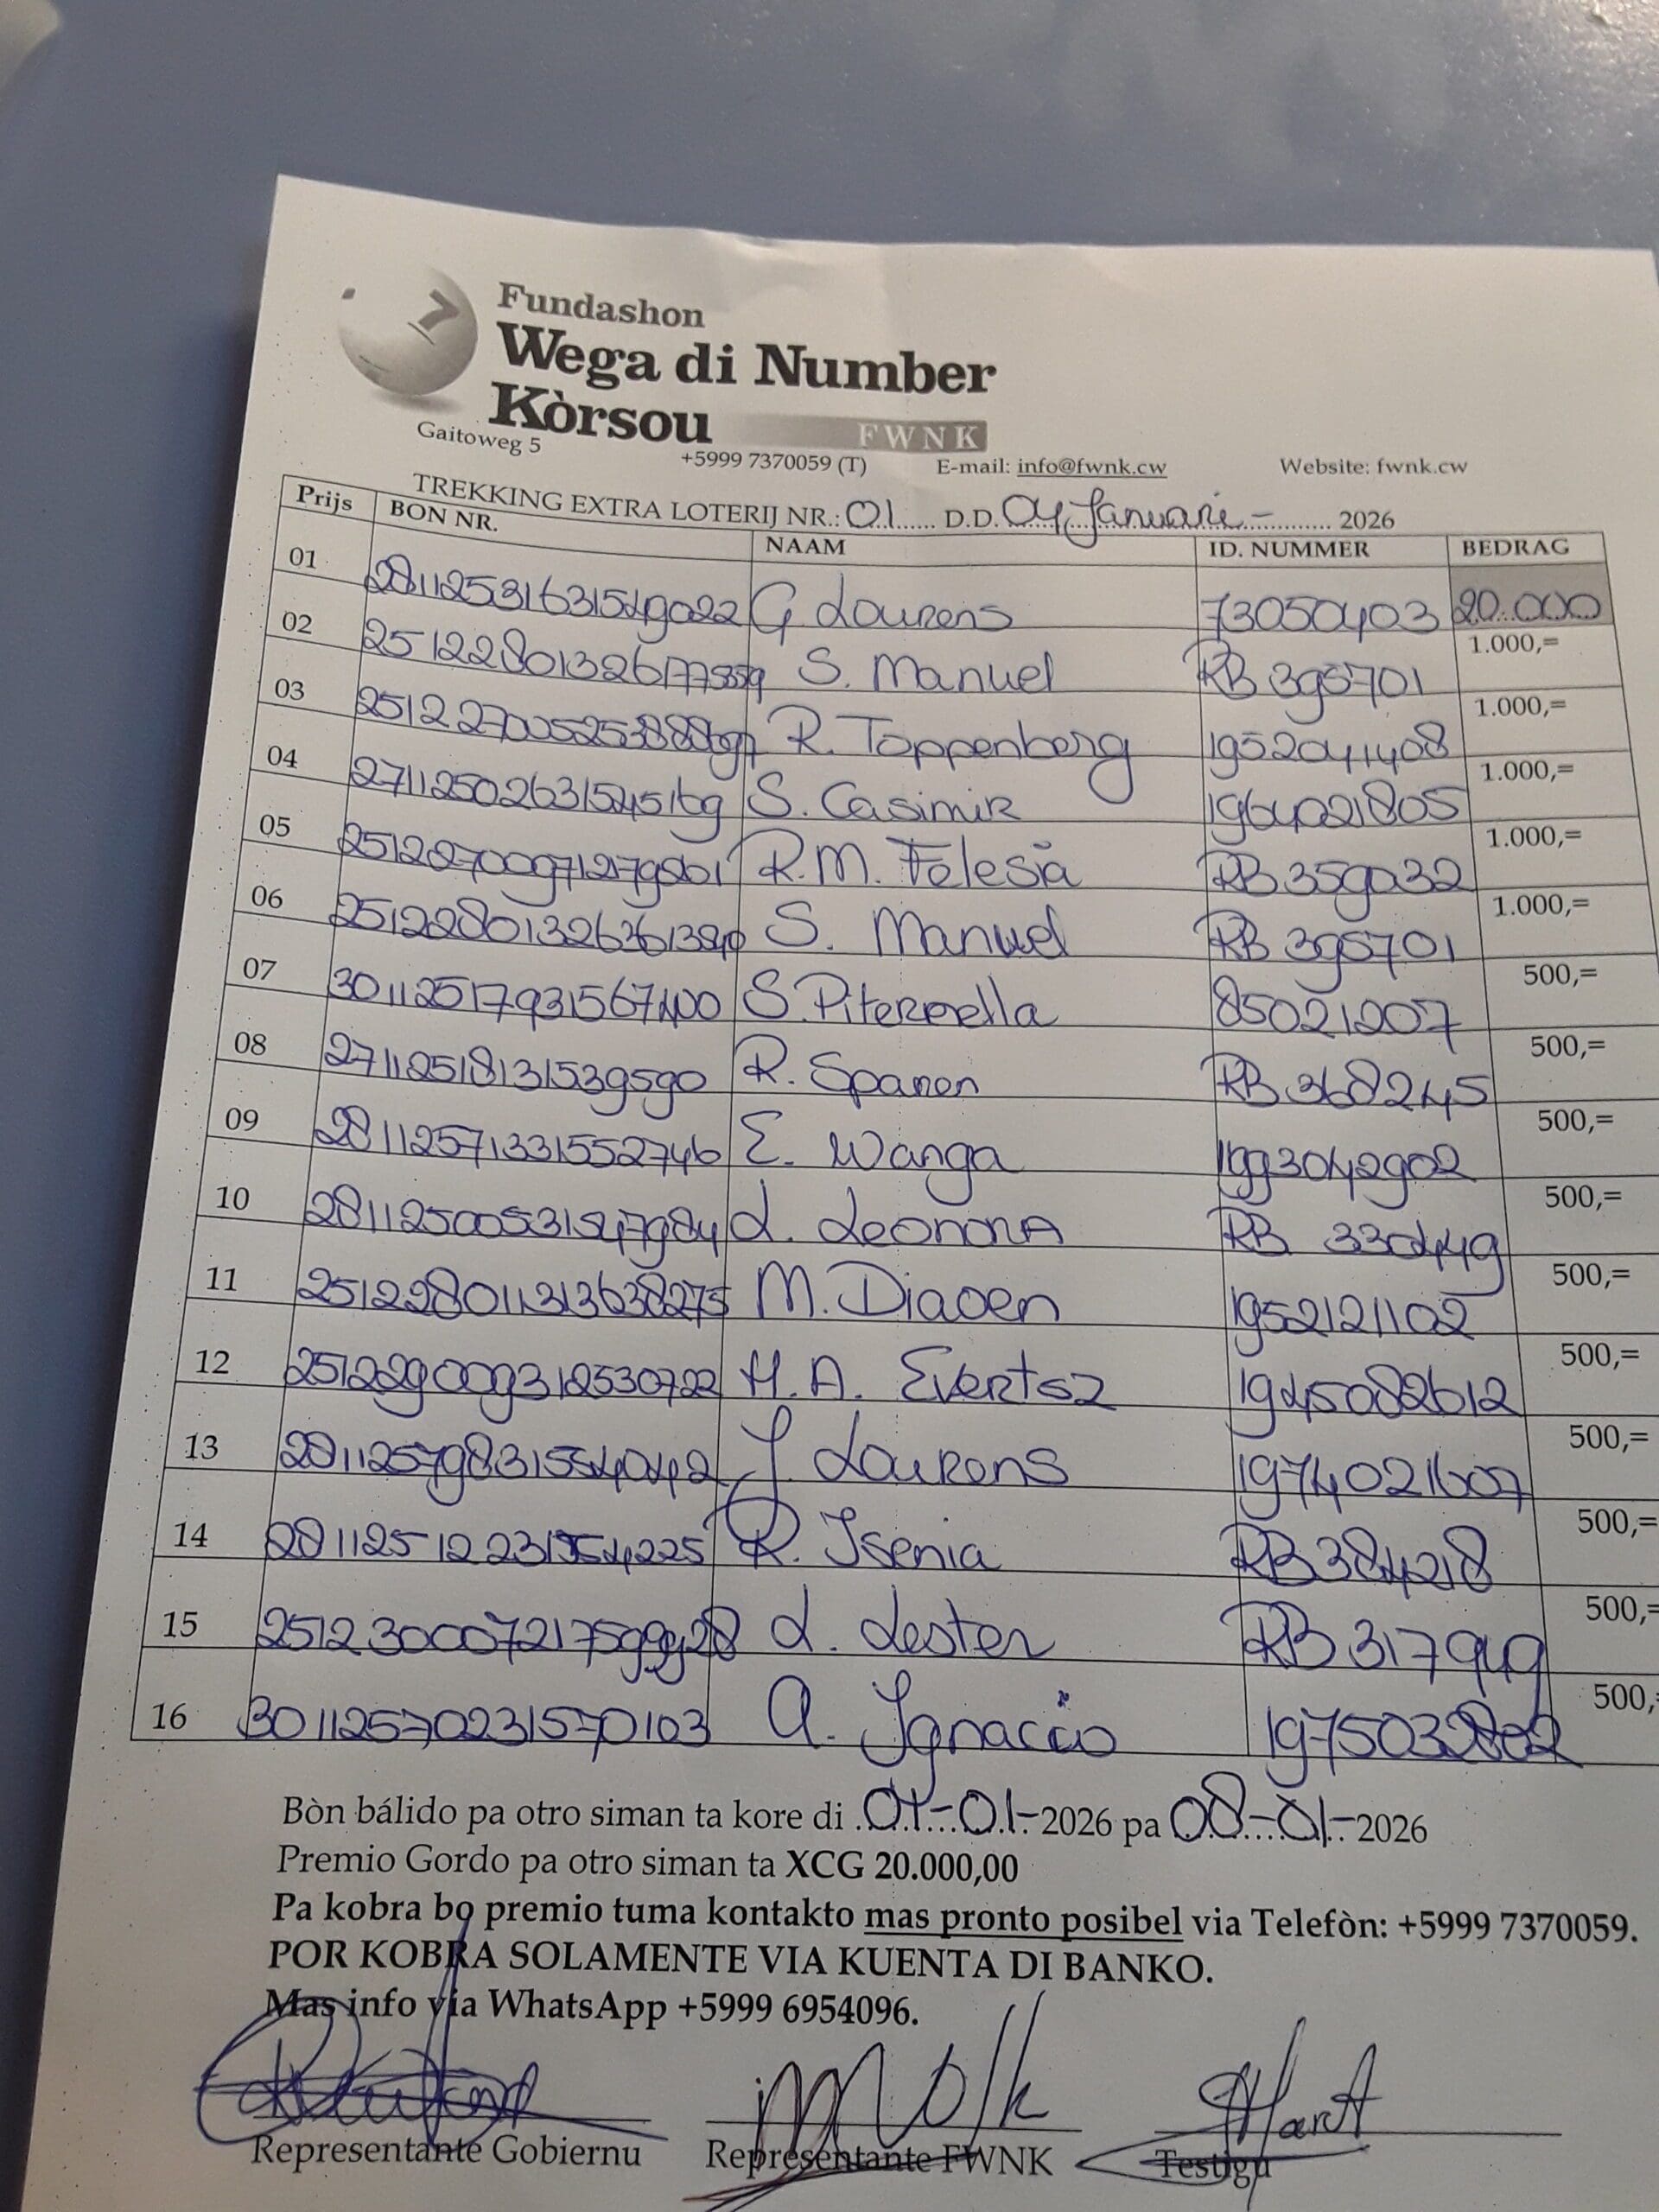 7
Fundashon
Wega di Number
Kòrsou
FWNK
Gaitoweg 5 +5999 7370059 (T) E-mail: info@fwnk.cw Website: fwnk.cw
TREKKING EXTRA LOTERIJ NR.: 01 D.D. 04 Januari - 2026
Prijs BON NR. NAAM ID. NUMMER BEDRAG
01 G Lourens 73050403 20.000
02 S. Manuel RB 395701 1.000,=
03 R. Toppenberg 1952041408 1.000,=
04 S. Casimir 1964021805 1.000,=
05 R.M. Felesia RB 359032 1.000,=
06 S. Manuel RB 395701 1.000,=
07 30112517931567400 S. Piternella 85021207 500,=
08 27112518131539590 R. Spanen RB 368245 500,=
09 28112571331552746 E. Wanga 1993042902 500,=
10 L. Leonora RB 330449 500,=
11 251228011313638275 M. Diaoen 1952121102 500,=
12 251229009312530722 H.A. Evertsz 1945082612 500,=
13 J. Lourens 1974021607 500,=
14 R. Isenia RB384218 500,=
15 L. Lester 500,=
16 30112570231570103 A. Ignacio 500,=
Bòn bálido pa otro siman ta kore di 01-01-2026 pa 08-01-2026
Premio Gordo pa otro siman ta XCG 20.000,00
Pa kobra bo premio tuma kontakto mas pronto posibel via Telefòn: +5999 7370059.
POR KOBRA SOLAMENTE VIA KUENTA DI BANKO.
Mas info via WhatsApp +5999 6954096.
Representante Gobiernu Representante FWNK Testigu